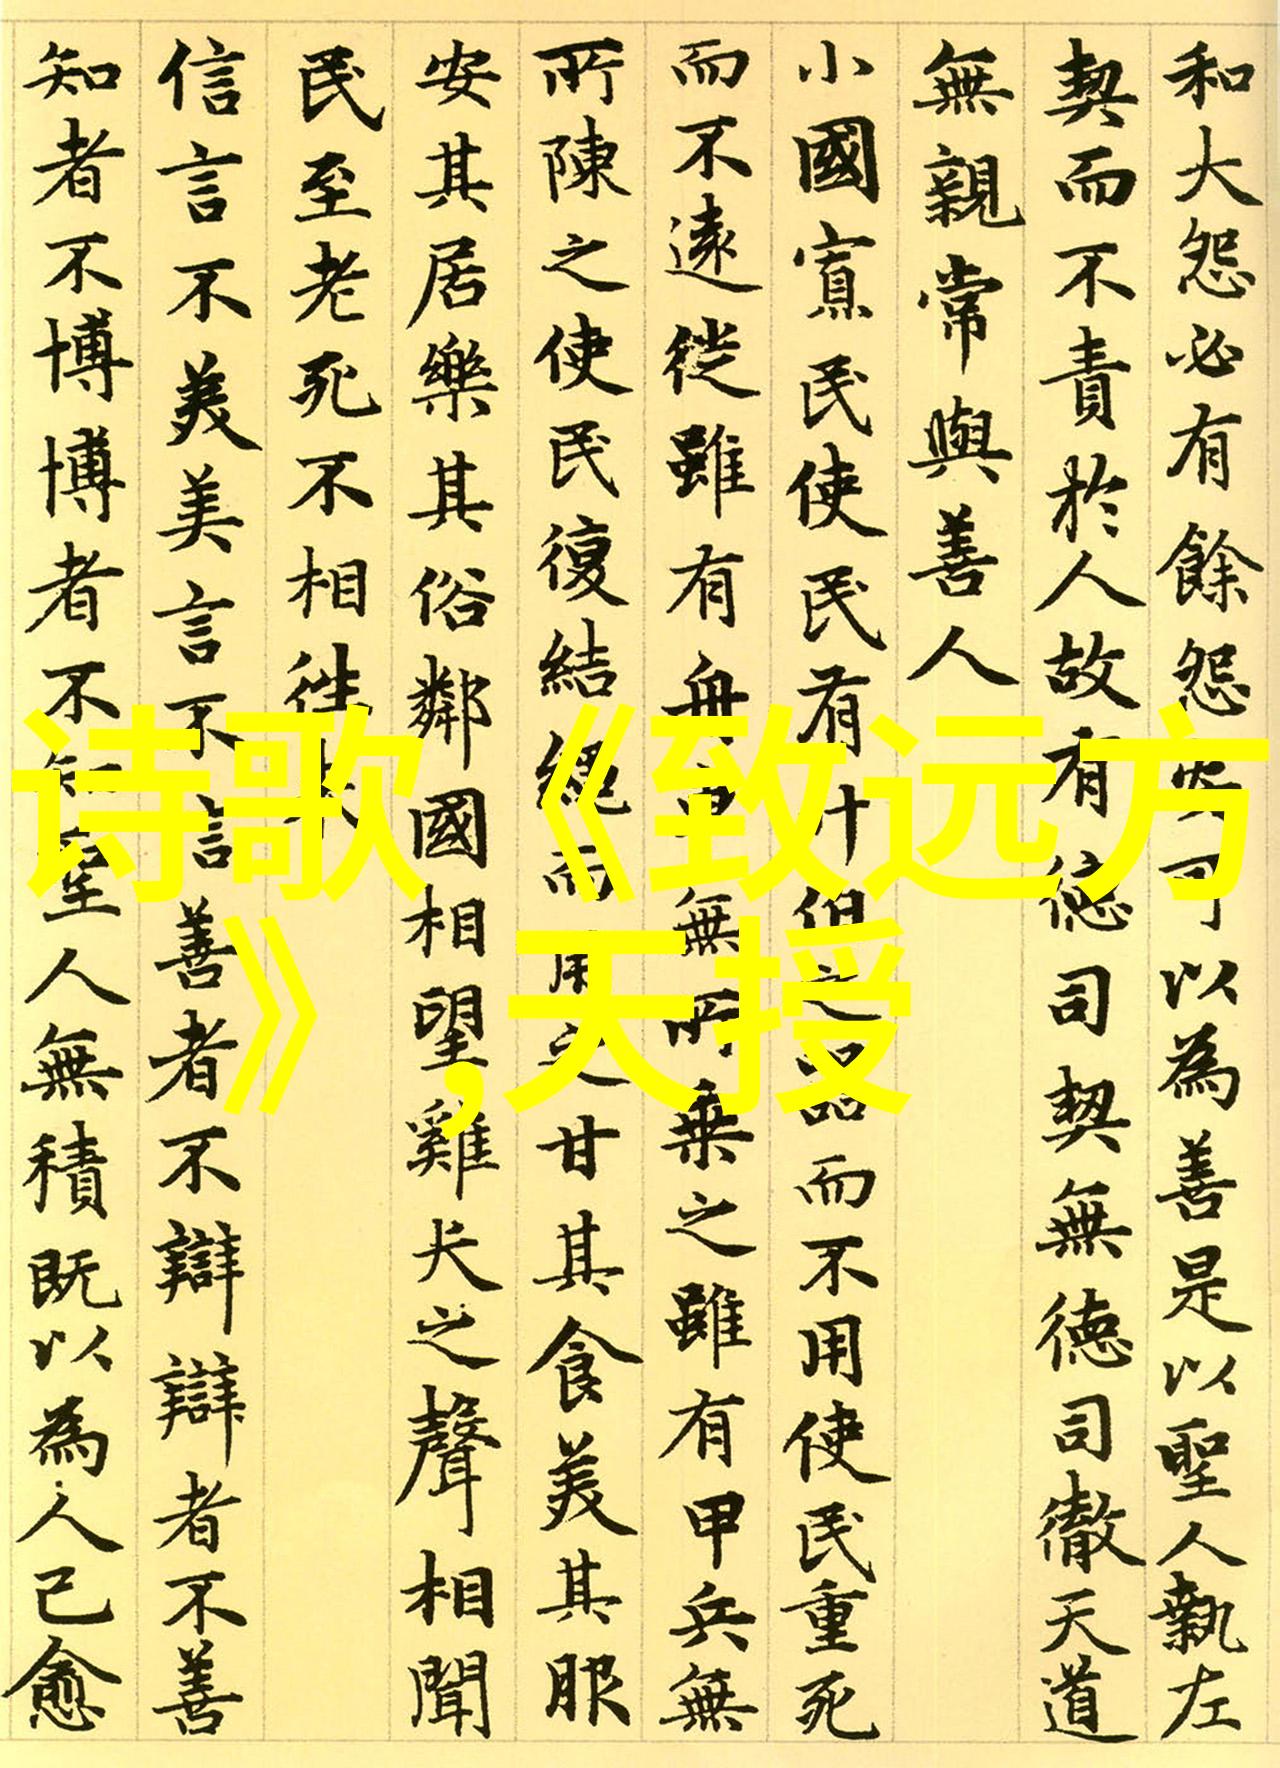 和大怨必有餘怨安可以為善是以聖人執左
契而不責於人故有德司契無德司徹天道
無親常與善人
小國寡民使民有什伯之品而不用使民重死
而不遠徙雖有舟車無所乗之雖有甲兵無
所陳之使民復結繩而用之甘其食美其服
安其居樂其俗鄰國相望雞犬之聲相聞
民至老死不相往来
信言不美美言不信善者不辯辯者不善
知者不博博者不知聖人無積既以為人己愈
诗歌《致远方
》,天授